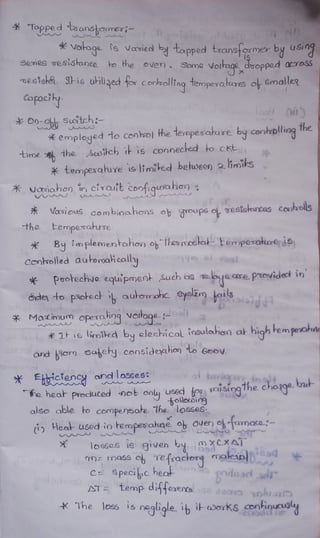 * Tapped transformer:-
* Voltage is varied by tapped transformer by using
series resistance to the oven. Some voltage is dropped across
resistor. It is utilized for controlling temperatures of smaller
capacity.
* On-off switch:-
* employed to control the temperature by controlling the
time of the switch it is connected to ckt.
* temperature is limited between 2 limits
* Variation in circuit configuration :
* Various combinations of groups of resistances controlls
the temperature
* By implementation of thermostat temperature is
controlled automatically
* Protective equipment such as relays are provided in
order to protect if automatic system fails
* Maximum operating voltage :-
* It is limited by electrical insulation at high temperature
and from safety consideration to 600V.
* Efficiency and losses:
The heat produced not only used for raising the charge but
also able to compensate the following losses.
(i) Heat used in temperature of oven of furnace:-
* losses is given by m×C×ΔT
m= mass of refractory material
C= specific heat
ΔT= temp difference
* The loss is negligle if it works continuously